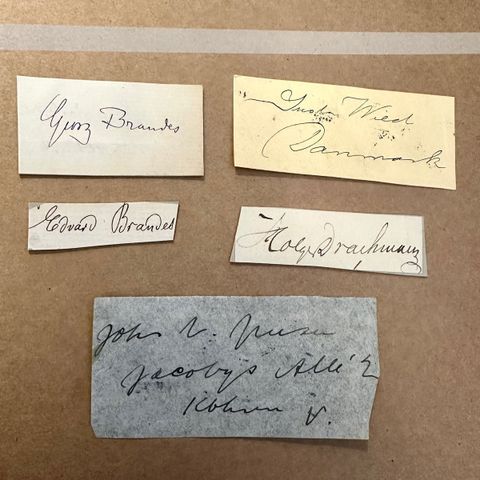 Georg Brandes
Gustav Wied
Danmark
Edvard Brandes
Holger Drachmann
Joh. V. Jensen
Jacobys Allé 2
Kbhvn V.